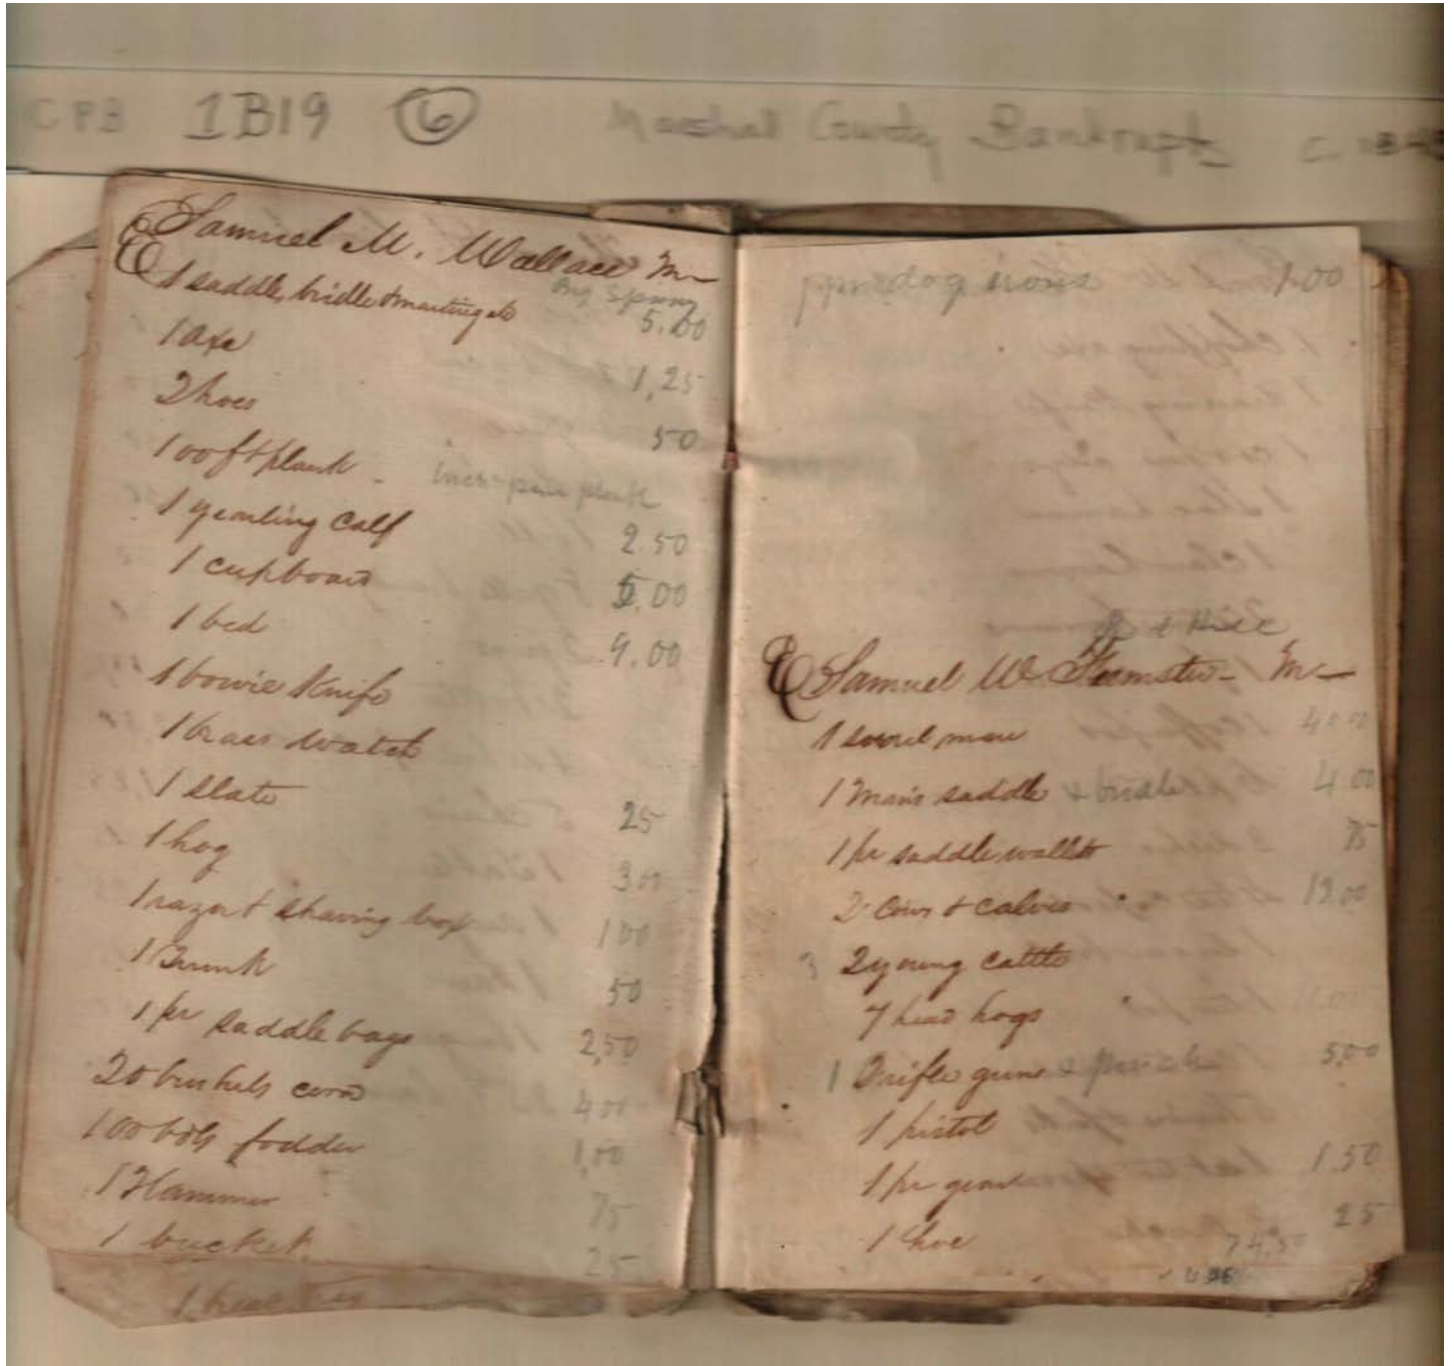 1B19 6 Marshal County Bankrupts
Samuel M. Wallace
Big Spring
1 saddle, bridle & martingale 5.00
1 axe 1,25
2 hoes 50
100 ft plank
1 yearling calf 2.50
1 cupboard 5.00
1 bed 9.00
1 bowie Knife
1 brass watch
1 slate 25
1 hog 300
1 razor & shaving box 100
1 Trunk 50
1 pr saddle bags 2,50
20 bushels corn 400
100 bdls fodder 1,00
1 Hammer 75
1 bucket. 25
dog irons 1.00
Samuel W
1 sorrel mare 40 00
1 man's saddle & bridle 4 00
1 pr saddle wallets 75
2 cows & calves 12.00
3 2 young cattle
7 head hogs
1 2 rifle guns 5,00
1 pistol
1 pr gears 1.50
1 hoe 25